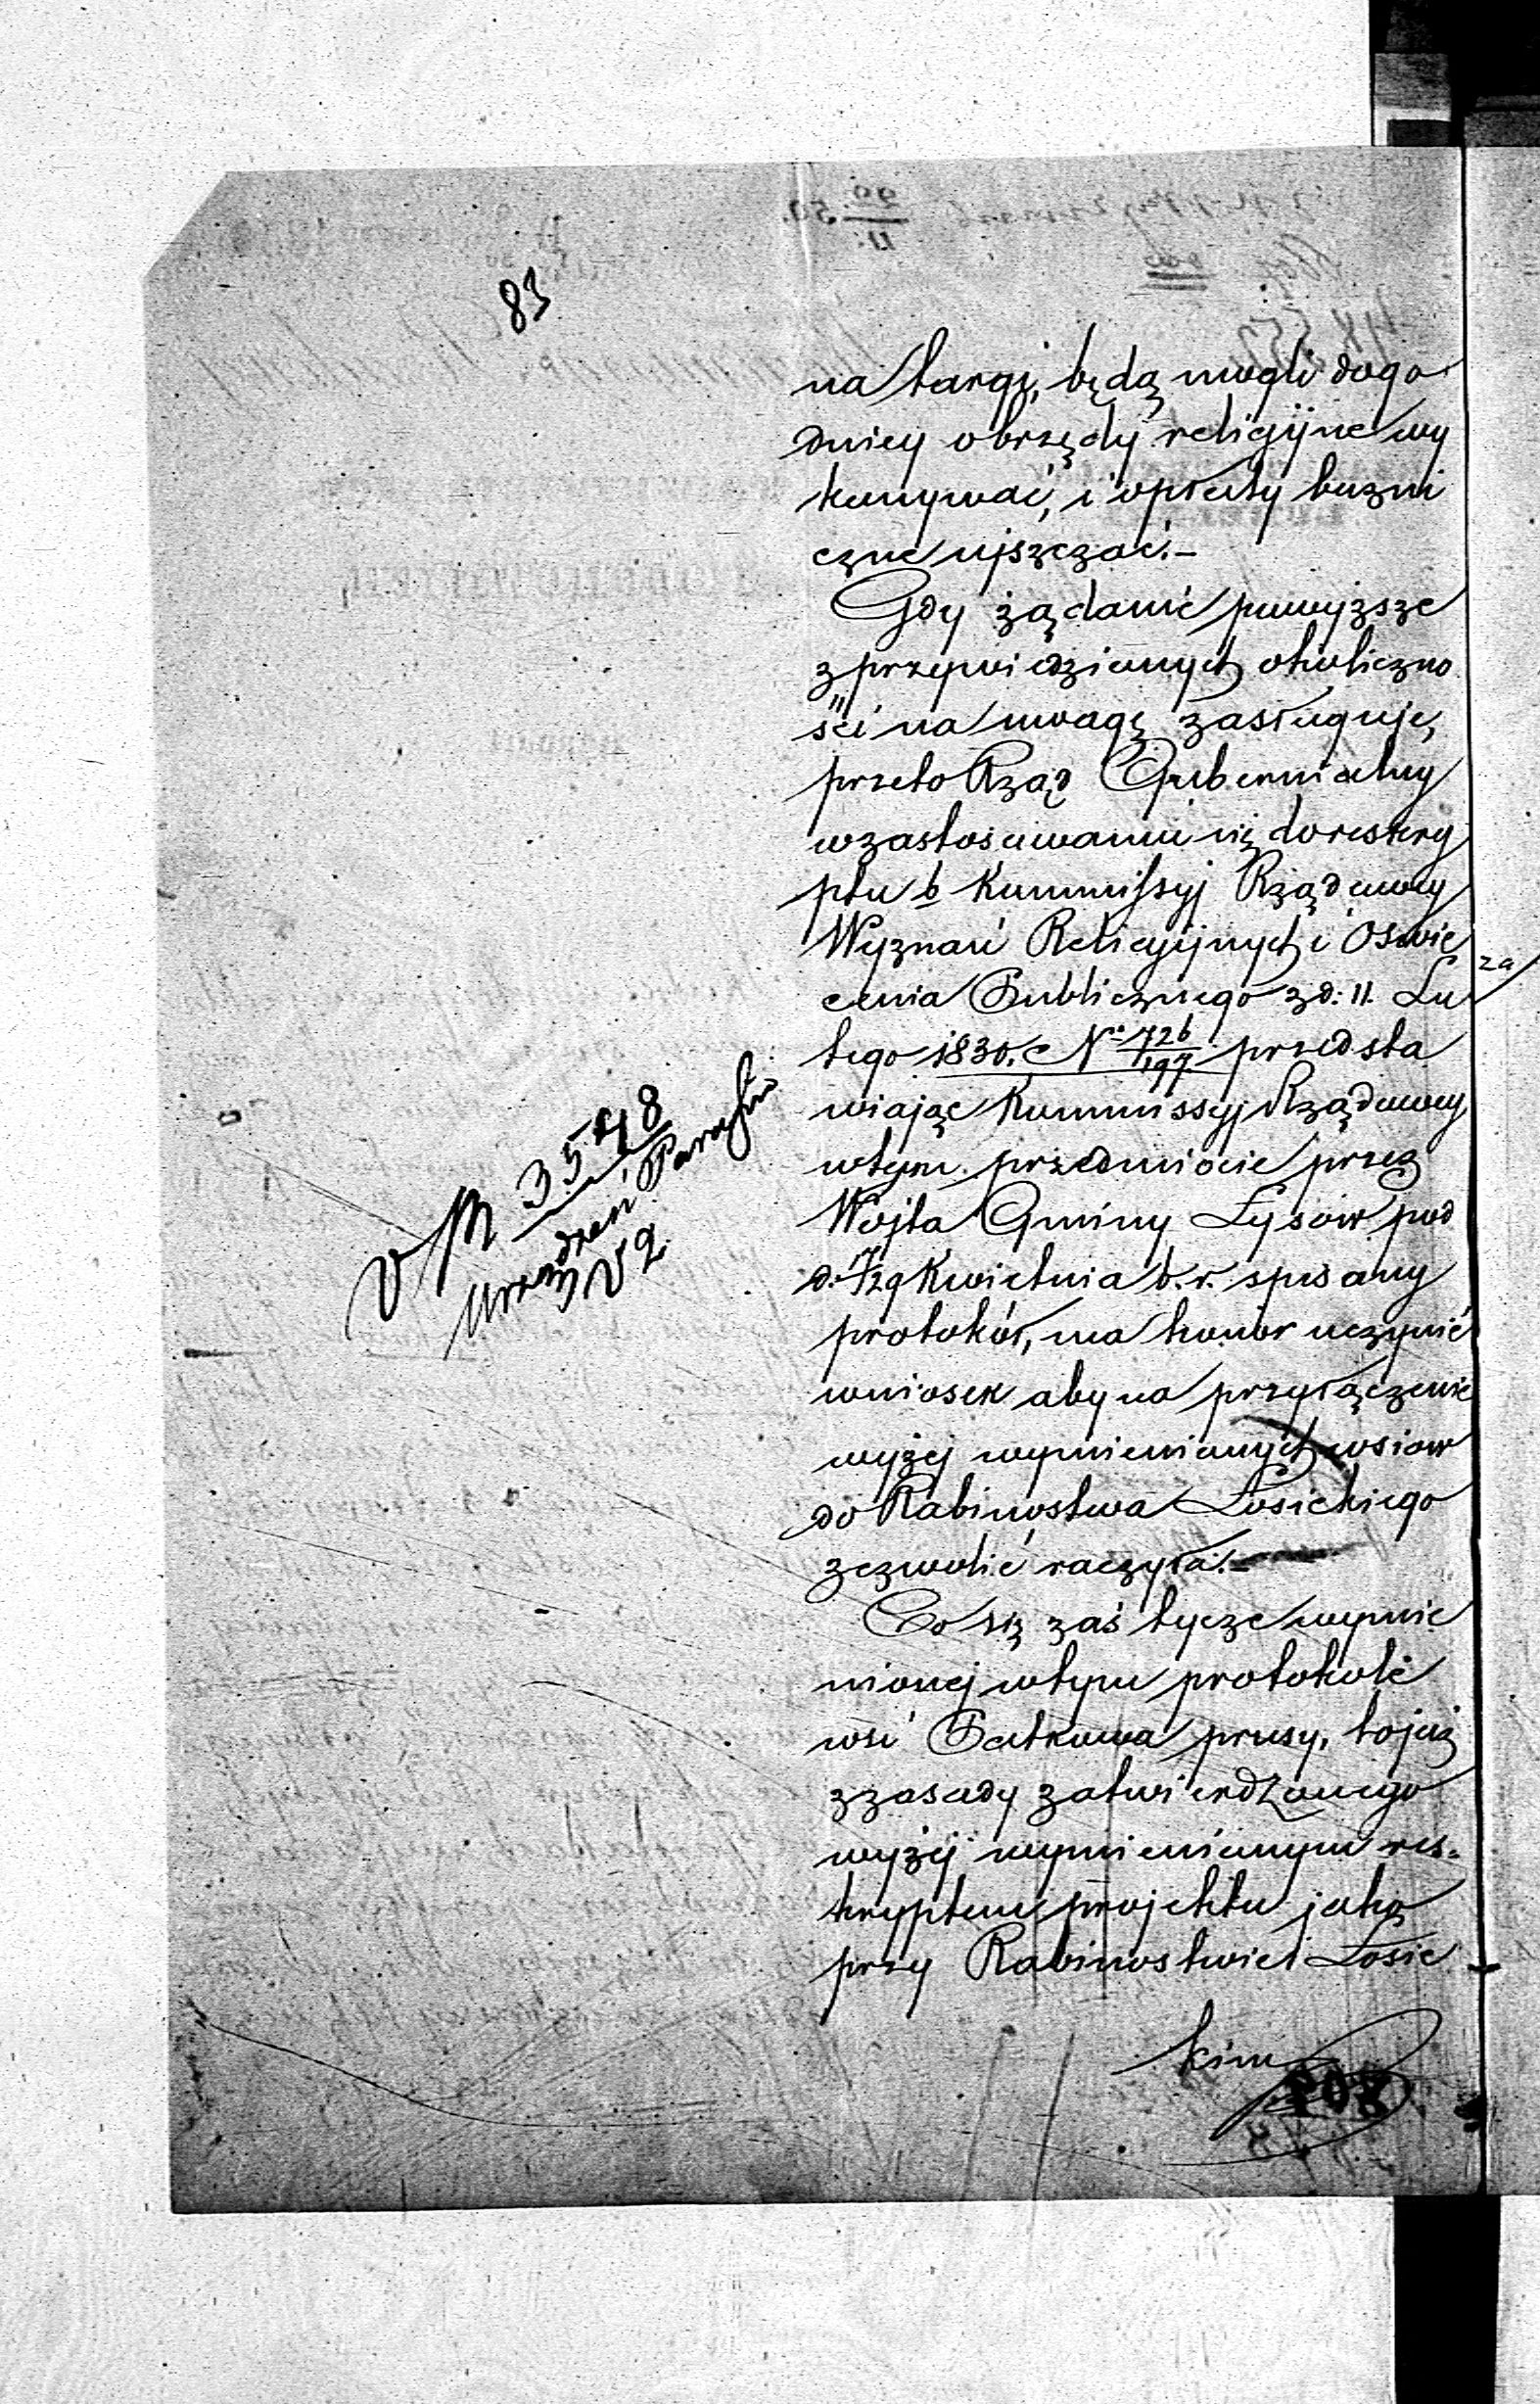 83
na targi, będą mogli dogo
dniey obrzędy religijne wy
konywać, i opłaty bożni
czne uiszczać.–
Gdy żądanie powyższe
z przywiedzionych okoliczno
ści na uwagę zasługuje,
przeto Rząd Gubernialny
w zastosowaniu się do reskry
ptu b Kommissyj Rządowey
Wyznań Religijnych i Oświe
cenia Publicznego z d: 11. Lu
tego 1830. N° 726/197 przedsta
wiając Kommissyj Rządowey
w tym przedmiocie przez
Wójta Gminy Łysow pod
d. 17/29 Kwietnia b.r. spisany
protokół, ma honor uczynić
wniosek aby na przyłączenie
wyżej wymienionych wsiow
do Rabinostwa Łosickiego
zezwolić raczyła.–
Co się zaś tycze wymie
nionej w tym protokole
wsi Patkowa prusy, to już
z zasady zatwierdzonego
wyżej wymienionym res-
kryptem projektu jako
przy Rabinostwie Łosic
kim
3548